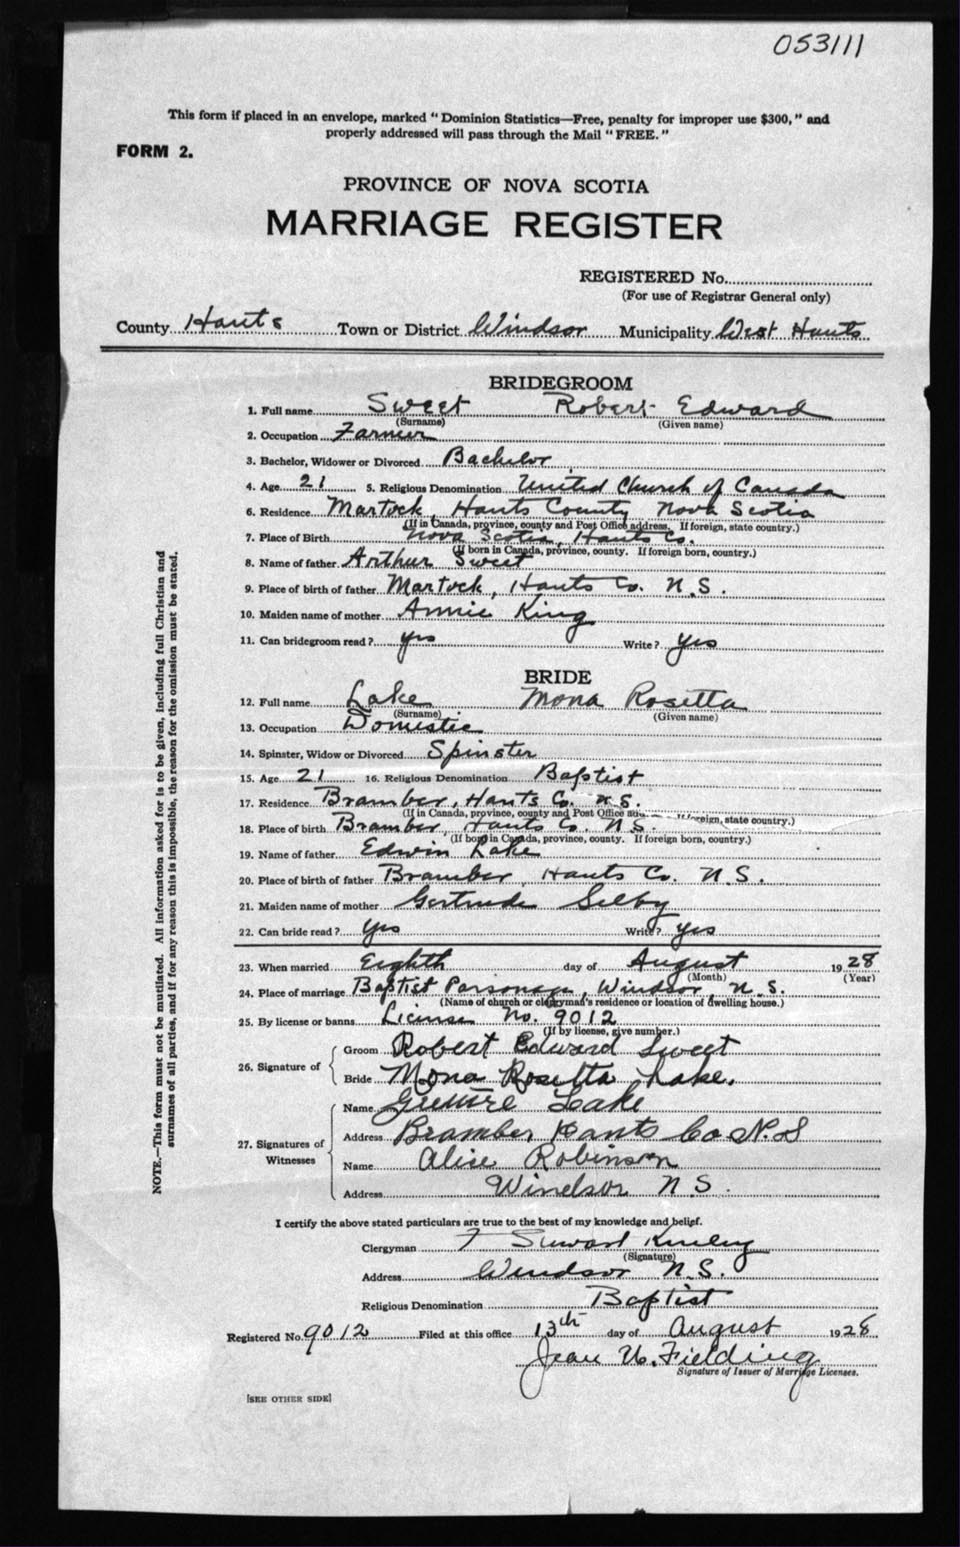 053111
This form if placed in an envelope, marked "Dominion Statistics—Free, penalty for improper use $300," and
properly addressed will pass through the Mail "FREE."
FORM 2.
PROVINCE OF NOVA SCOTIA
MARRIAGE REGISTER
REGISTERED No.
(For use of Registrar General only)
County Hants Town or District Windsor Municipality West Hants
BRIDEGROOM
1. Full name Sweet Robert Edward
(Surname) (Given name)
2. Occupation Farmer
3. Bachelor, Widower or Divorced Bachelor
4. Age 21 5. Religious Denomination United Church of Canada
6. Residence Martock, Hants County Nova Scotia
(If in Canada, province, county and Post Office address. If foreign, state country.)
7. Place of Birth Nova Scotia, Hants Co.
(If born in Canada, province, county. If foreign born, country.)
8. Name of father Arthur Sweet
9. Place of birth of father Martock, Hants Co. N.S.
10. Maiden name of mother Annie King
11. Can bridegroom read? yes Write? yes
BRIDE
12. Full name Lake Mona Rosetta
(Surname) (Given name)
13. Occupation Domestic
14. Spinster, Widow or Divorced Spinster
15. Age 21 16. Religious Denomination Baptist
17. Residence Bramber, Hants Co. N.S.
(If in Canada, province, county and Post Office If foreign, state country.)
18. Place of birth Bramber, Hants Co. N.S.
(If born in Canada, province, county. If foreign born, country.)
19. Name of father Edwin Lake
20. Place of birth of father Bramber, Hants Co. N.S.
21. Maiden name of mother Gertrude Selby
22. Can bride read? yes Write? yes
23. When married Eighth day of August 1928
(Month) (Year)
24. Place of marriage Baptist Parsonage, Windsor, N.S.
(Name of church or clergyman's residence or location of dwelling house.)
25. By license or banns License No. 9012
(If by license, give number.)
26. Signature of
Groom Robert Edward Sweet
Bride Mona Rosetta Lake.
27. Signatures of
Witnesses
Name Lake
Address Bramber Hants Co N.S
Name Alice Robinson
Address Windsor N S.
I certify the above stated particulars are true to the best of my knowledge and belief.
Clergyman
(Signature)
Address Windsor N.S.
Religious Denomination Baptist
Registered No. 9012 Filed at this office 13th day of August 1928
Jean W. Fielding
Signature of Issuer of Marriage Licenses.
[SEE OTHER SIDE]
NOTE.—This form must not be mutilated. All information asked for is to be given, including full Christian and
surnames of all parties, and if for any reason this is impossible, the reason for the omission must be stated.